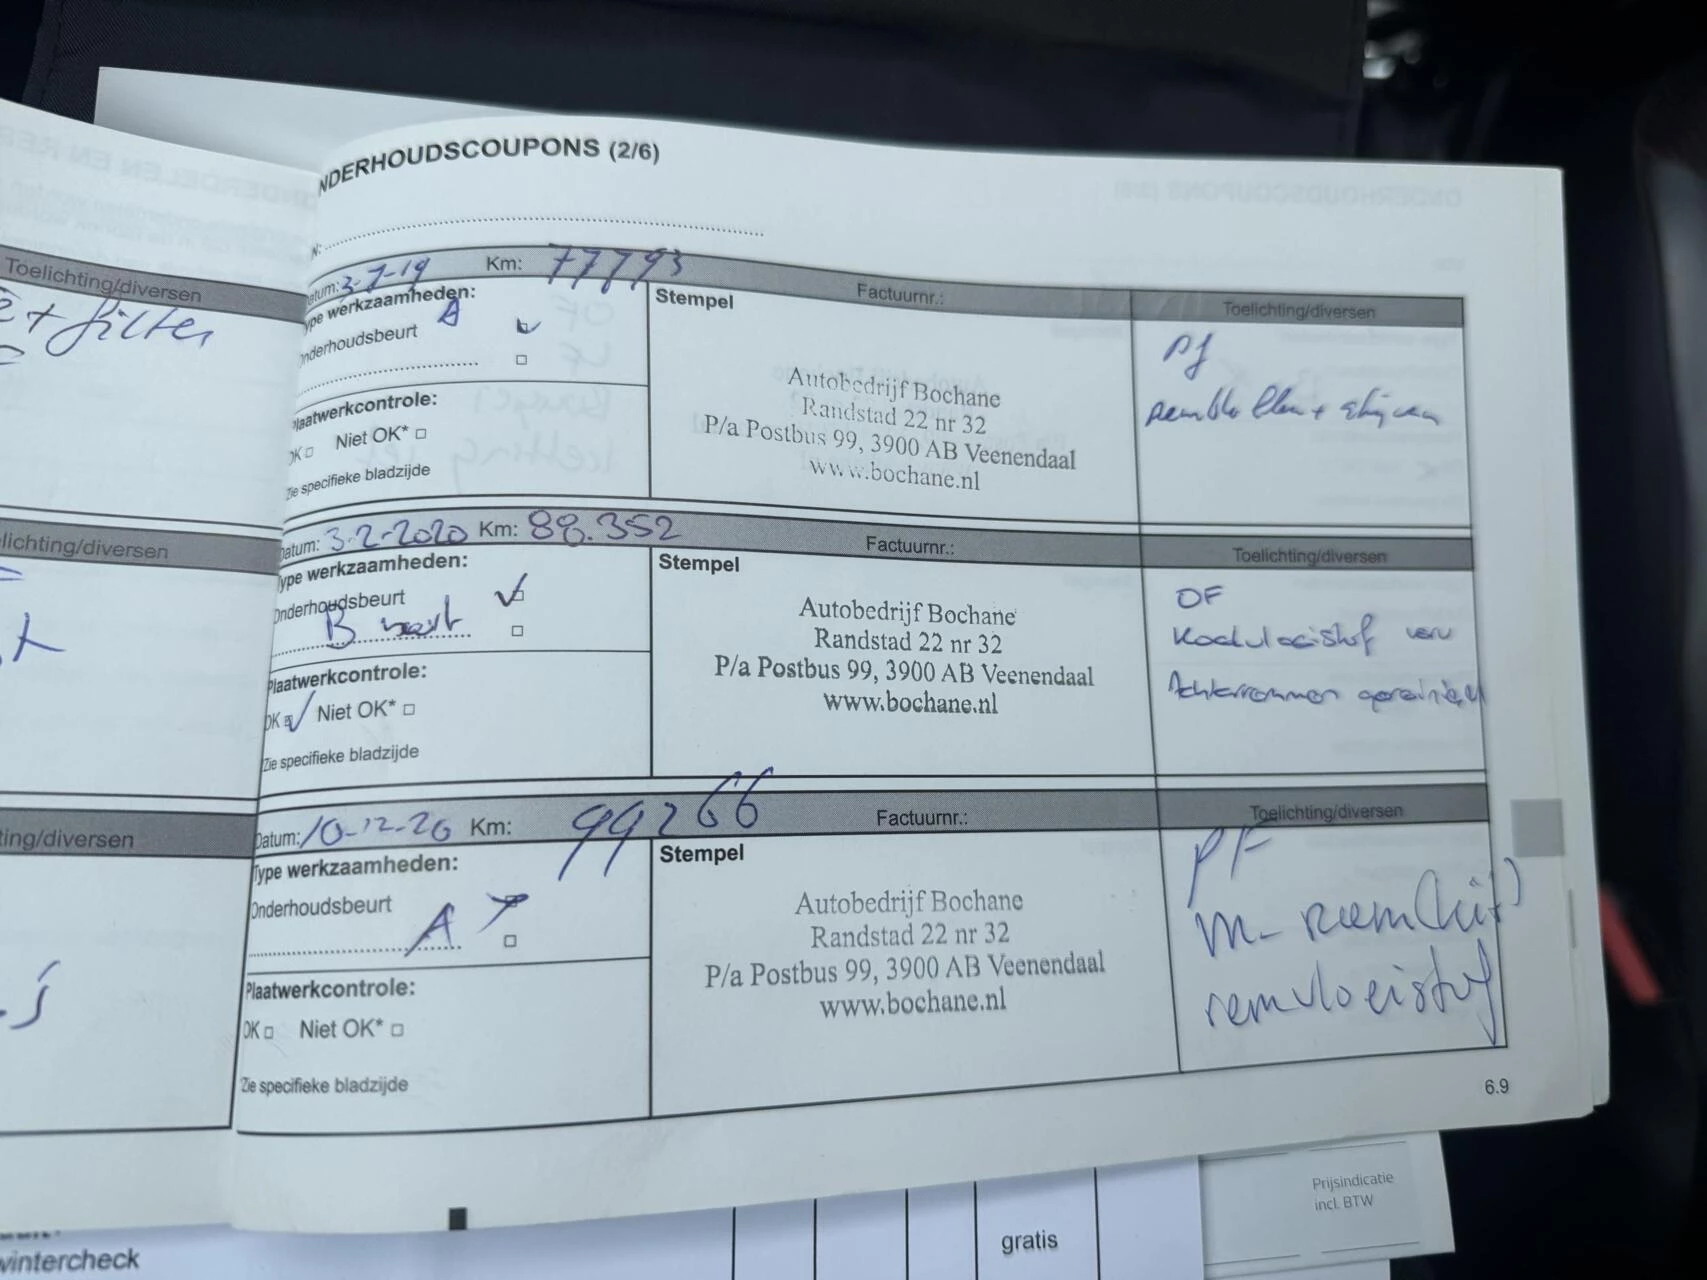 NDERHOUDSCOUPONS (2/6)
Toelichting/diversen
+ filter
lichting/diversen
ting/diversen
N:
Datum: 3-7-19 Km: 77793 Factuurnr.: Toelichting/diversen
Type werkzaamheden: Stempel
A
Onderhoudsbeurt
Plaatwerkcontrole:
OK Niet OK*
Zie specifieke bladzijde
Autobedrijf Bochane
Randstad 22 nr 32
P/a Postbus 99, 3900 AB Veenendaal
www.bochane.nl
remblokken + schijven
Datum: 3-2-2020 Km: 88.352 Factuurnr.: Toelichting/diversen
Type werkzaamheden: Stempel
Onderhoudsbeurt
B beurt
Plaatwerkcontrole:
OK Niet OK*
Zie specifieke bladzijde
Autobedrijf Bochane
Randstad 22 nr 32
P/a Postbus 99, 3900 AB Veenendaal
www.bochane.nl
OF
Koelvloeistof verv
Achterremmen gereinigd
Datum: 10-12-20 Km: 99266 Factuurnr.: Toelichting/diversen
Type werkzaamheden: Stempel
Onderhoudsbeurt
A
Plaatwerkcontrole:
OK Niet OK*
Zie specifieke bladzijde
Autobedrijf Bochane
Randstad 22 nr 32
P/a Postbus 99, 3900 AB Veenendaal
www.bochane.nl
PF
remvloeistof
6.9
Prijsindicatie
incl. BTW
wintercheck
gratis